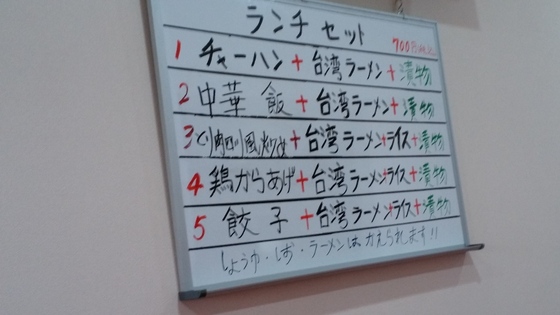 ランチセット
700円
1 チャーハン+台湾ラーメン+漬物
2 中華飯+台湾ラーメン+漬物
3 とり肉四川風炒め+台湾ラーメン+ライス+漬物
4 鶏からあげ+台湾ラーメン+ライス+漬物
5 餃子+台湾ラーメン+ライス+漬物
しょうゆ・しお・ラーメンはかえられます!!